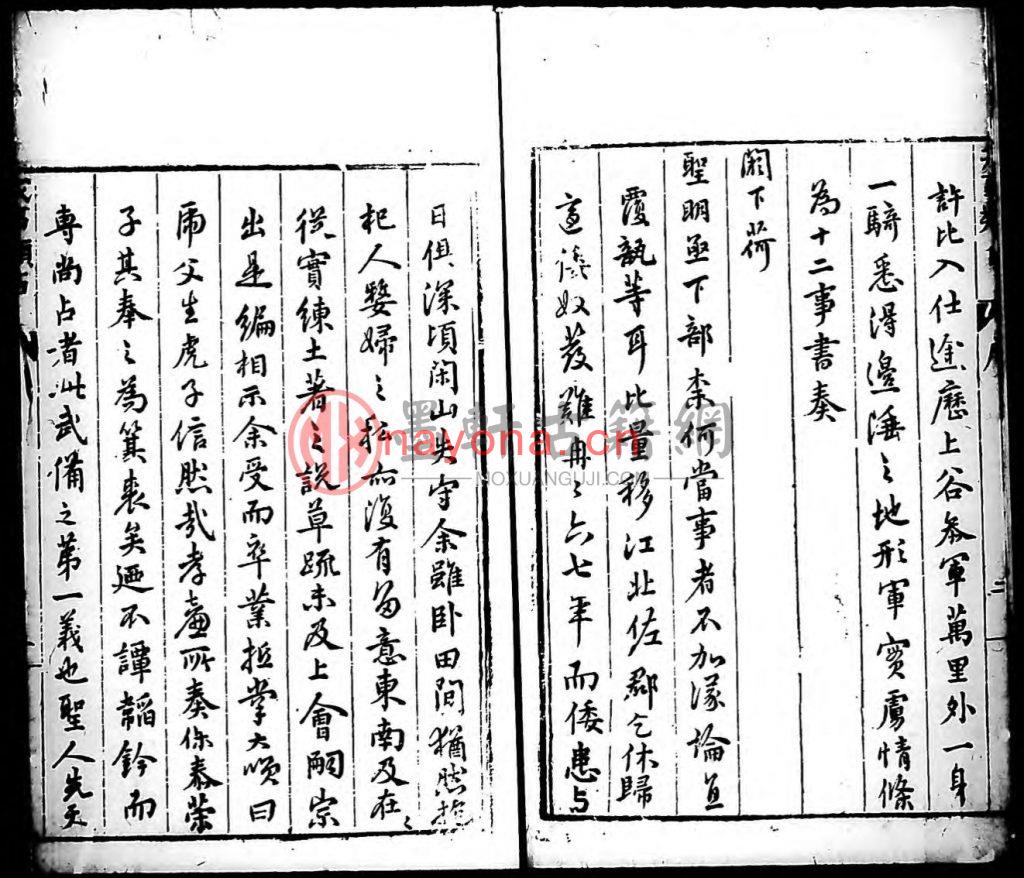 許比入仕途歷上谷參軍萬里外一身
一騎悉得邊陲之地形軍實虜情條
為十二事書奏
闕下荷
聖明亟下部柰何當事者不加深論直
覆瓿等耳比量移江北佐郡乞休歸
奴發難冉〻六七年而倭患与
日俱深頃閑山失守余雖卧田間猶然抱
杞人嫠婦之私而復有留意東南及在〻
從實練土著之說草疏未及上會嗣宗
出是編相示余受而卒業抵掌大噱曰
虎父生虎子信然哉孝廉所奏泰榮
子其奉之為箕裘矣迺不譚韜鈐而
專尚占者此武備之第一義也聖人先天
序
二
墨軒古籍網
nayona.cn
MOXUANGUJI.COM